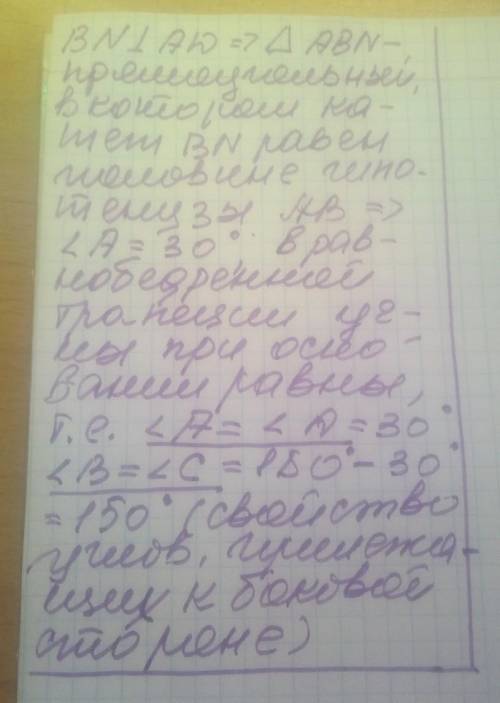 BN⊥AD => △ ABN-
прямоугольный,
в котором ка-
тет BN равен
половине гипо-
тенузы AB =>
∠A = 30°. В рав-
нобедренной
трапеции уг-
лы при осно-
вании равны,
т.е. ∠A = ∠D = 30°
∠B = ∠C = 180° - 30°
= 150° (свойство
углов, прилежа-
щих к боковой
стороне)